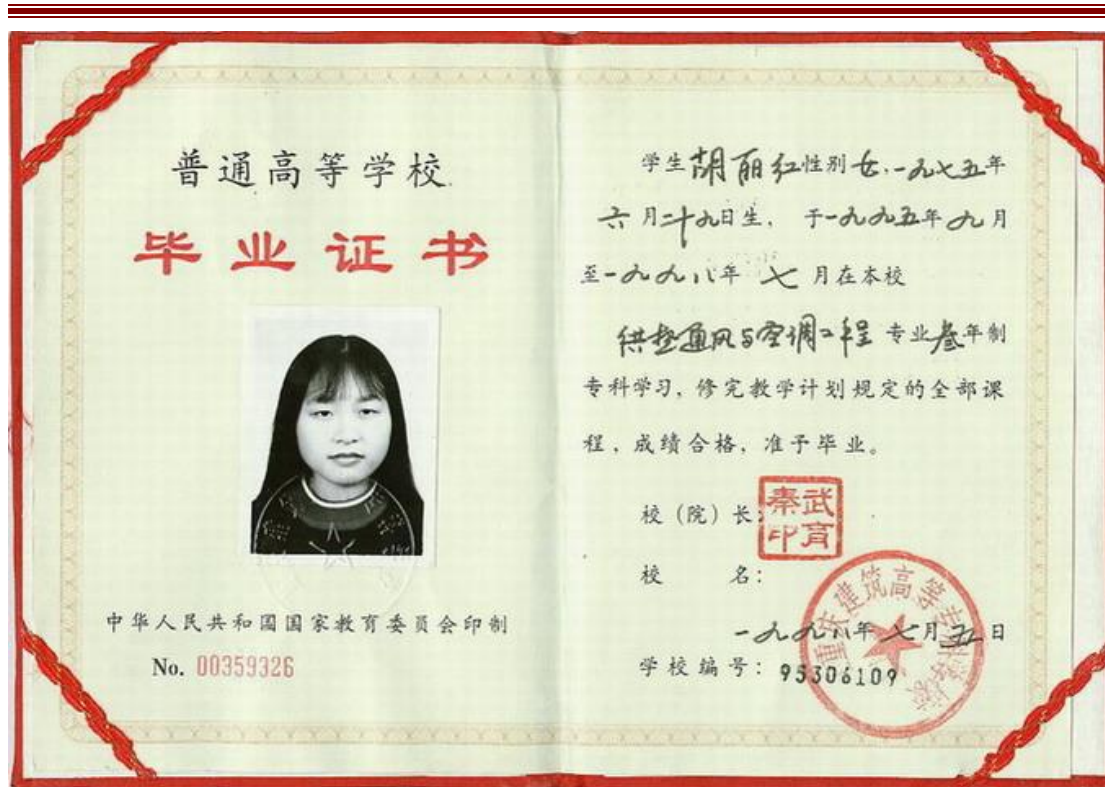 普通高等学校
毕业证书
中华人民共和国国家教育委员会印制
No. 00359326
学生胡丽红性别女,一九七五年
六月二十九日生, 于一九九五年九月
至一九九八年 七 月在本校
供热通风与空调工程 专业叁年制
专科学习,修完教学计划规定的全部课
程,成绩合格,准予毕业。
校(院)长:
武育秦印
校 名:
重庆建筑高等专科学校
一九九八年七月五日
学校编号: 95306109